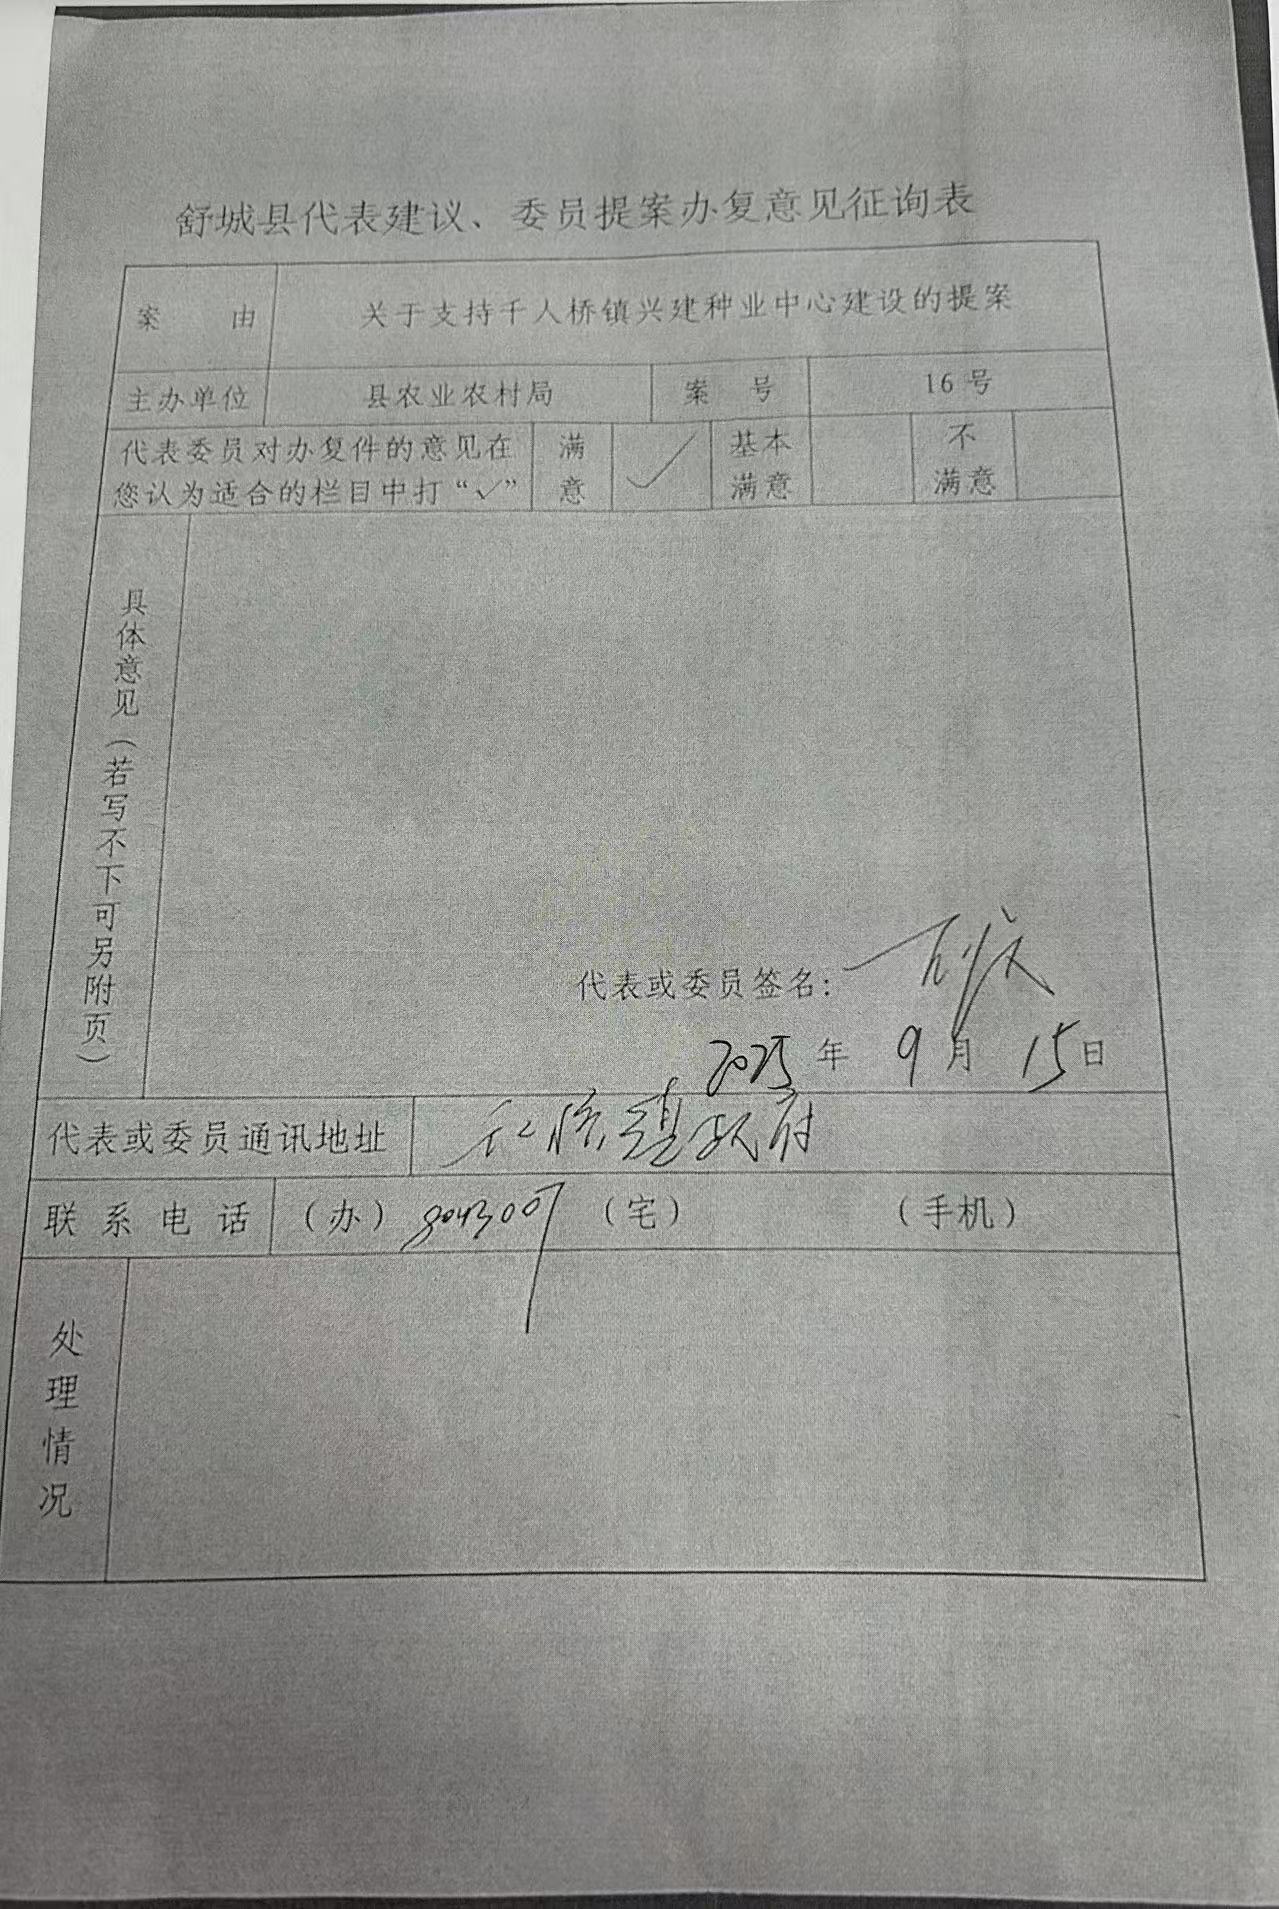 舒城县代表建议、委员提案办复意见征询表
案 由 关于支持千人桥镇兴建种业中心建设的提案
主办单位 县农业农村局 案 号 16号
代表委员对办复件的意见在您认为适合的栏目中打“✓” 满意 ✓ 基本满意 不满意
具体意见（若写不下可另附页）
代表或委员签名：
2025年 9月 15日
代表或委员通讯地址 镇政府
联系电话 （办）8043007 （宅） （手机）
处理情况